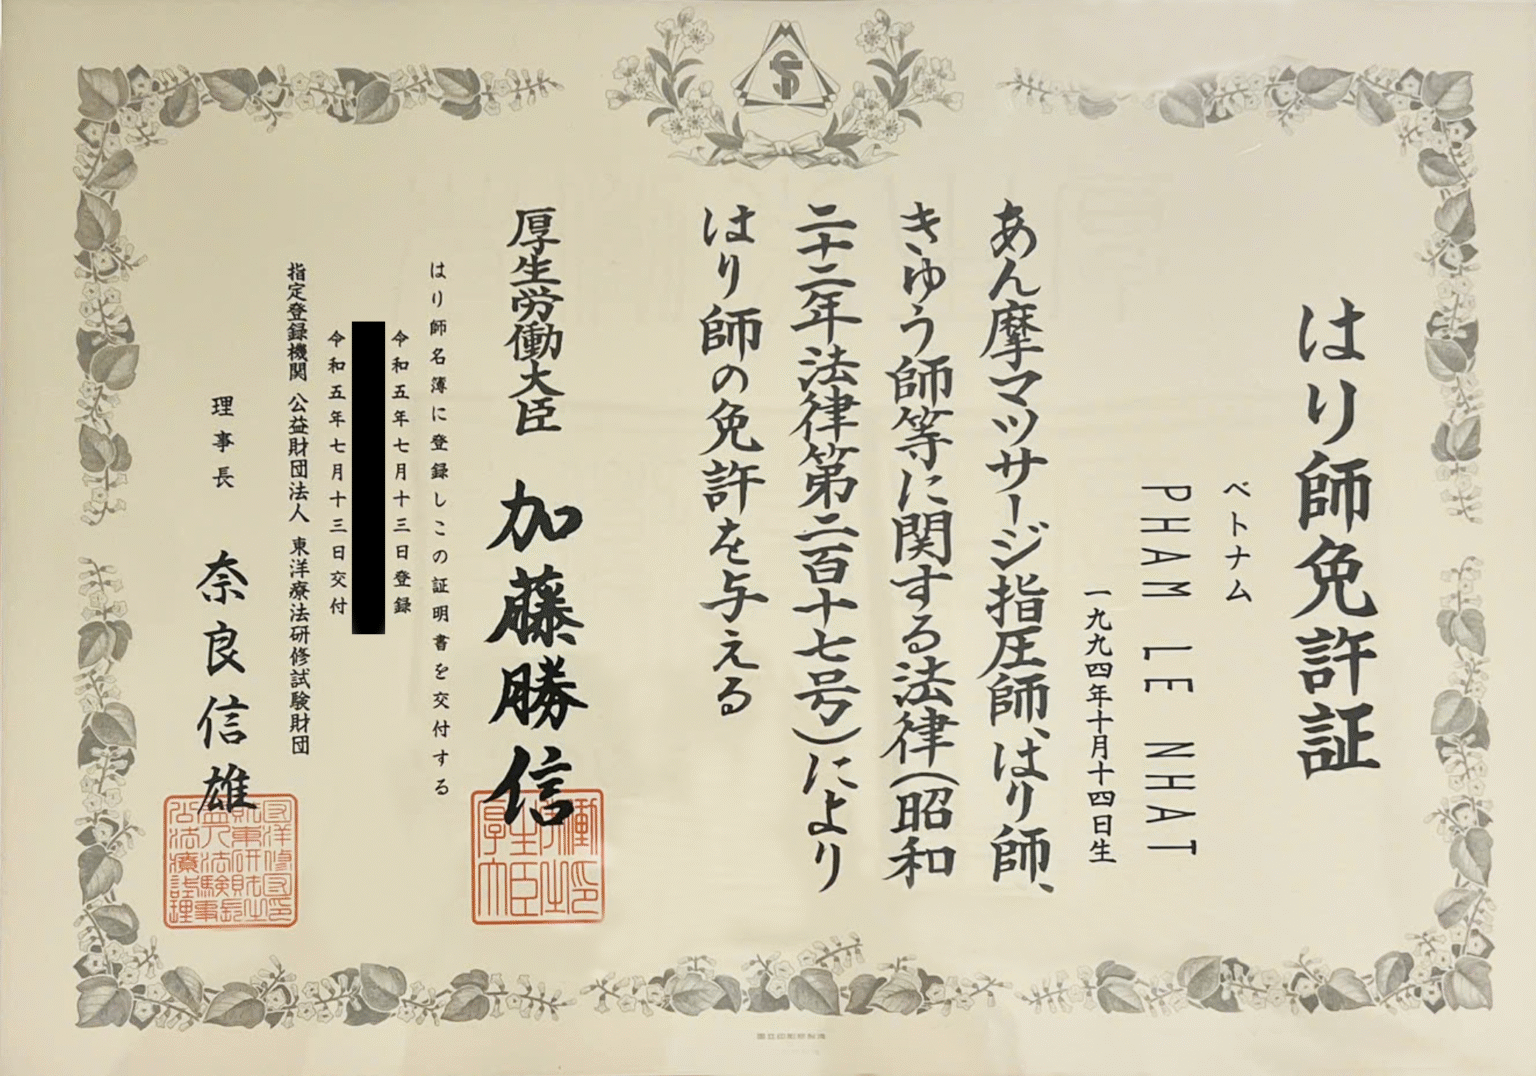 はり師免許証
ベトナム
PHAM LE NHAT
一九九四年十月十四日生
あん摩マツサージ指圧師、はり師、
きゆう師等に関する法律（昭和
二十二年法律第二百十七号）により
はり師の免許を与える
厚生労働大臣 加藤勝信
はり師名簿に登録しこの証明書を交付する
令和五年七月十三日登録
令和五年七月十三日交付
指定登録機関 公益財団法人 東洋療法研修試験財団
理事長 奈良信雄